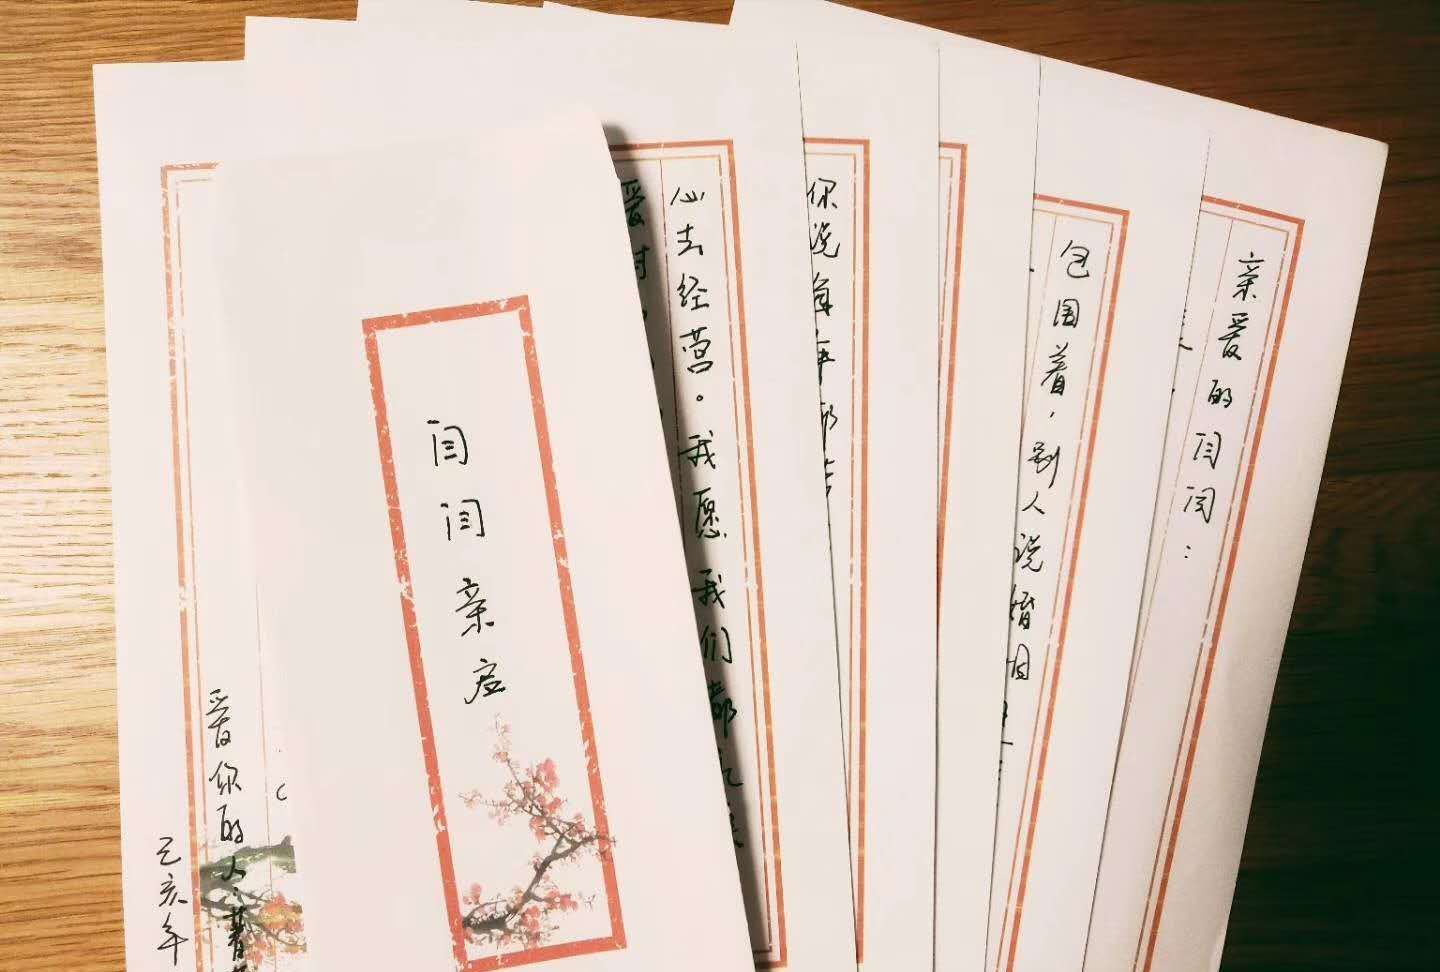 亲爱的闫闫：
包围着，别人说婚姻
你说每年都
心去经营。我愿我们都
爱对
闫闫亲启
爱你的人：
己亥年